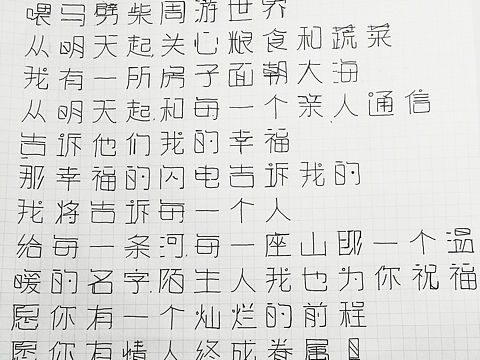 喂马劈柴周游世界
从明天起关心粮食和蔬菜
我有一所房子面朝大海
从明天起.和每一个亲人通信
告诉他们我的幸福
那幸福的闪电告诉我的
我将告诉每一个人
给每一条河.每一座山取一个温
暖的名字.陌生人我也为你祝福
愿你有一个灿烂的前程
愿你有情人终成眷属